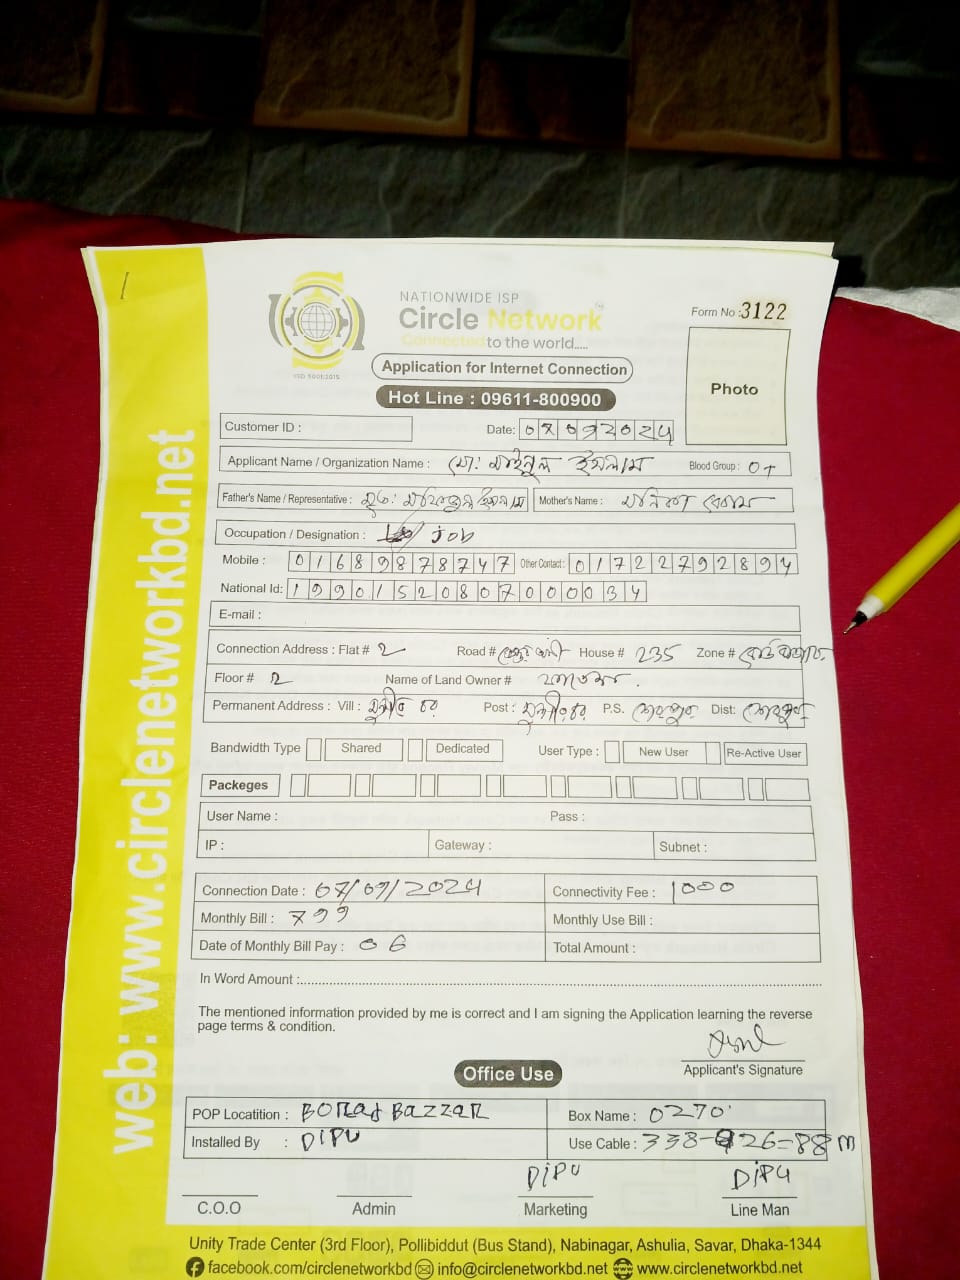 NATIONWIDE ISP
Circle Network
Connected to the world.....
ISO 9001:2015
Form No : 3122
Application for Internet Connection
Hot Line : 09611-800900
Photo
Customer ID :
Date: 07092024
Applicant Name / Organization Name : মো: মাইনুল ইসলাম Blood Group : O+
Father's Name / Representative : মৃত: মফিজুল ইসলাম Mother's Name : মনিকা বেগম
Occupation / Designation : Job
Mobile : 01689878747 Other Contact : 01722792894
National Id: 19901520807000034
E-mail :
Connection Address : Flat # 2 Road # House # 235 Zone #
Floor # 2 Name of Land Owner #
Permanent Address : Vill : মুন্সীর চর Post : মুন্সীরচর P.S. শেরপুর Dist: শেরপুর
Bandwidth Type Shared Dedicated User Type : New User Re-Active User
Packeges
User Name : Pass :
IP : Gateway : Subnet :
Connection Date : 07/09/2024 Connectivity Fee : 1000
Monthly Bill : 799 Monthly Use Bill :
Date of Monthly Bill Pay : 06 Total Amount :
In Word Amount :
The mentioned information provided by me is correct and I am signing the Application learning the reverse
page terms & condition.
Applicant's Signature
Office Use
POP Locatition : BORAJ BAZZAR Box Name : 0270
Installed By : DIPU Use Cable : 338-426=88 m
DIPU DIPU
C.O.O Admin Marketing Line Man
Unity Trade Center (3rd Floor), Pollibiddut (Bus Stand), Nabinagar, Ashulia, Savar, Dhaka-1344
facebook.com/circlenetworkbd info@circlenetworkbd.net www.circlenetworkbd.net
web: www.circlenetworkbd.net